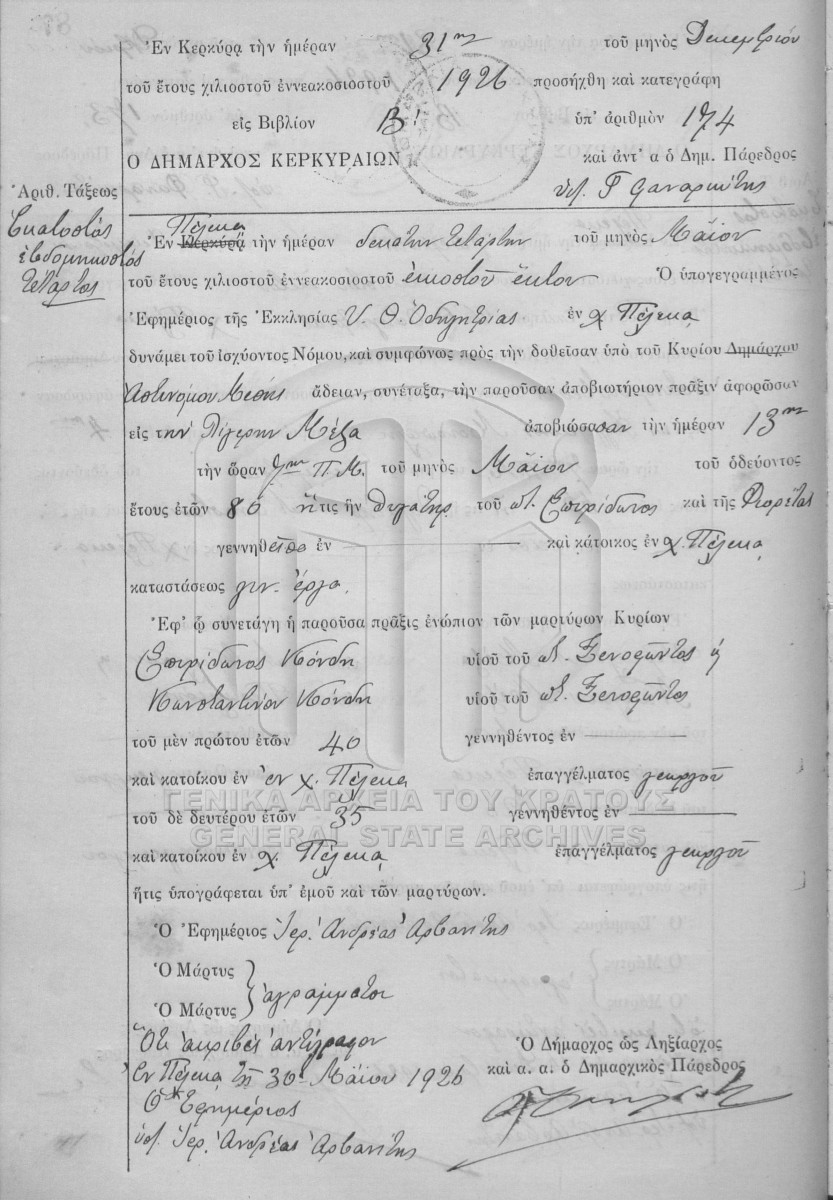 Ἐν Κερκύρᾳ τὴν ἡμέραν 31ην τοῦ μηνὸς Δεκεμβρίου
τοῦ ἔτους χιλιοστοῦ ἐννεακοσιοστοῦ 1926 προσήχθη καὶ κατεγράφη
εἰς Βιβλίον Β! ὑπ' ἀριθμὸν 174
Ὁ ΔΗΜΑΡΧΟΣ ΚΕΡΚΥΡΑΙΩΝ καὶ ἀντ' α ὁ Δημ. Πάρεδρος
Ἀριθ. Τάξεως
Ἑκατοστός
ἑβδομηκοστός
τέταρτος
Πέλεκα
Ἐν Κερκύρᾳ τὴν ἡμέραν δεκάτην τετάρτην τοῦ μηνὸς Μαΐου
τοῦ ἔτους χιλιοστοῦ ἐννεακοσιοστοῦ εἰκοστοῦ ἕκτου Ὁ ὑπογεγραμμένος
Ἐφημέριος τῆς Ἐκκλησίας Υ. Θ. Ὁδηγητρίας ἐν χ. Πέλεκα
δυνάμει τοῦ ἰσχύοντος Νόμου, καὶ συμφώνως πρὸς τὴν δοθεῖσαν ὑπὸ τοῦ Κυρίου Δημάρχου
Ἀστυνόμου Μέσης ἄδειαν, συνέταξα, τὴν παροῦσαν ἀποβιωτήριον πρᾶξιν ἀφορῶσαν
εἰς την Μέξα ἀποβιώσασαν τὴν ἡμέραν 13ην
τὴν ὥραν 7ην Π.Μ. τοῦ μηνὸς Μαΐου τοῦ ὁδεύοντος
ἔτους ἐτῶν 80 ἥτις ἦν θυγάτηρ τοῦ ποτ. Σπυρίδωνος καὶ τῆς Φιορέτας
γεννηθεῖσα ἐν καὶ κάτοικος ἐν χ. Πέλεκα
καταστάσεως γυν. ἔργα
Ἐφ' ᾧ συνετάγη ἡ παροῦσα πρᾶξις ἐνώπιον τῶν μαρτύρων Κυρίων
Σπυρίδωνος Κόνδη υἱοῦ τοῦ ποτ. Ξενοφῶντος ἡ
Κωνσταντίνου Κόνδη υἱοῦ τοῦ ποτ. Ξενοφῶντος
τοῦ μὲν πρώτου ἐτῶν 40 γεννηθέντος ἐν
καὶ κατοίκου ἐν ἐν χ. Πέλεκα ἐπαγγέλματος γεωργοῦ
ΓΕΝΙΚΑ ΑΡΧΕΙΑ ΤΟΥ ΚΡΑΤΟΥΣ
τοῦ δὲ δευτέρου ἐτῶν 35 γεννηθέντος ἐν
GENERAL STATE ARCHIVES
καὶ κατοίκου ἐν χ. Πέλεκα ἐπαγγέλματος γεωργοῦ
ἥτις ὑπογράφεται ὑπ' ἐμοῦ καὶ τῶν μαρτύρων.
Ὁ Ἐφημέριος Ἱερ. Ἀνδρέας Ἀρβανίτης
Ὁ Μάρτυς
ἀγράμματοι
Ὁ Μάρτυς
Ὅτι ἀκριβές ἀντίγραφον
Ἐν Πέλεκα τῇ 30 Μαΐου 1926
Ὁ Ἐφημέριος
ὑπ. Ἱερ. Ἀνδρέας Ἀρβανίτης
Ὁ Δήμαρχος ὡς Ληξίαρχος
καὶ α. α. ὁ Δημαρχικὸς Πάρεδρος